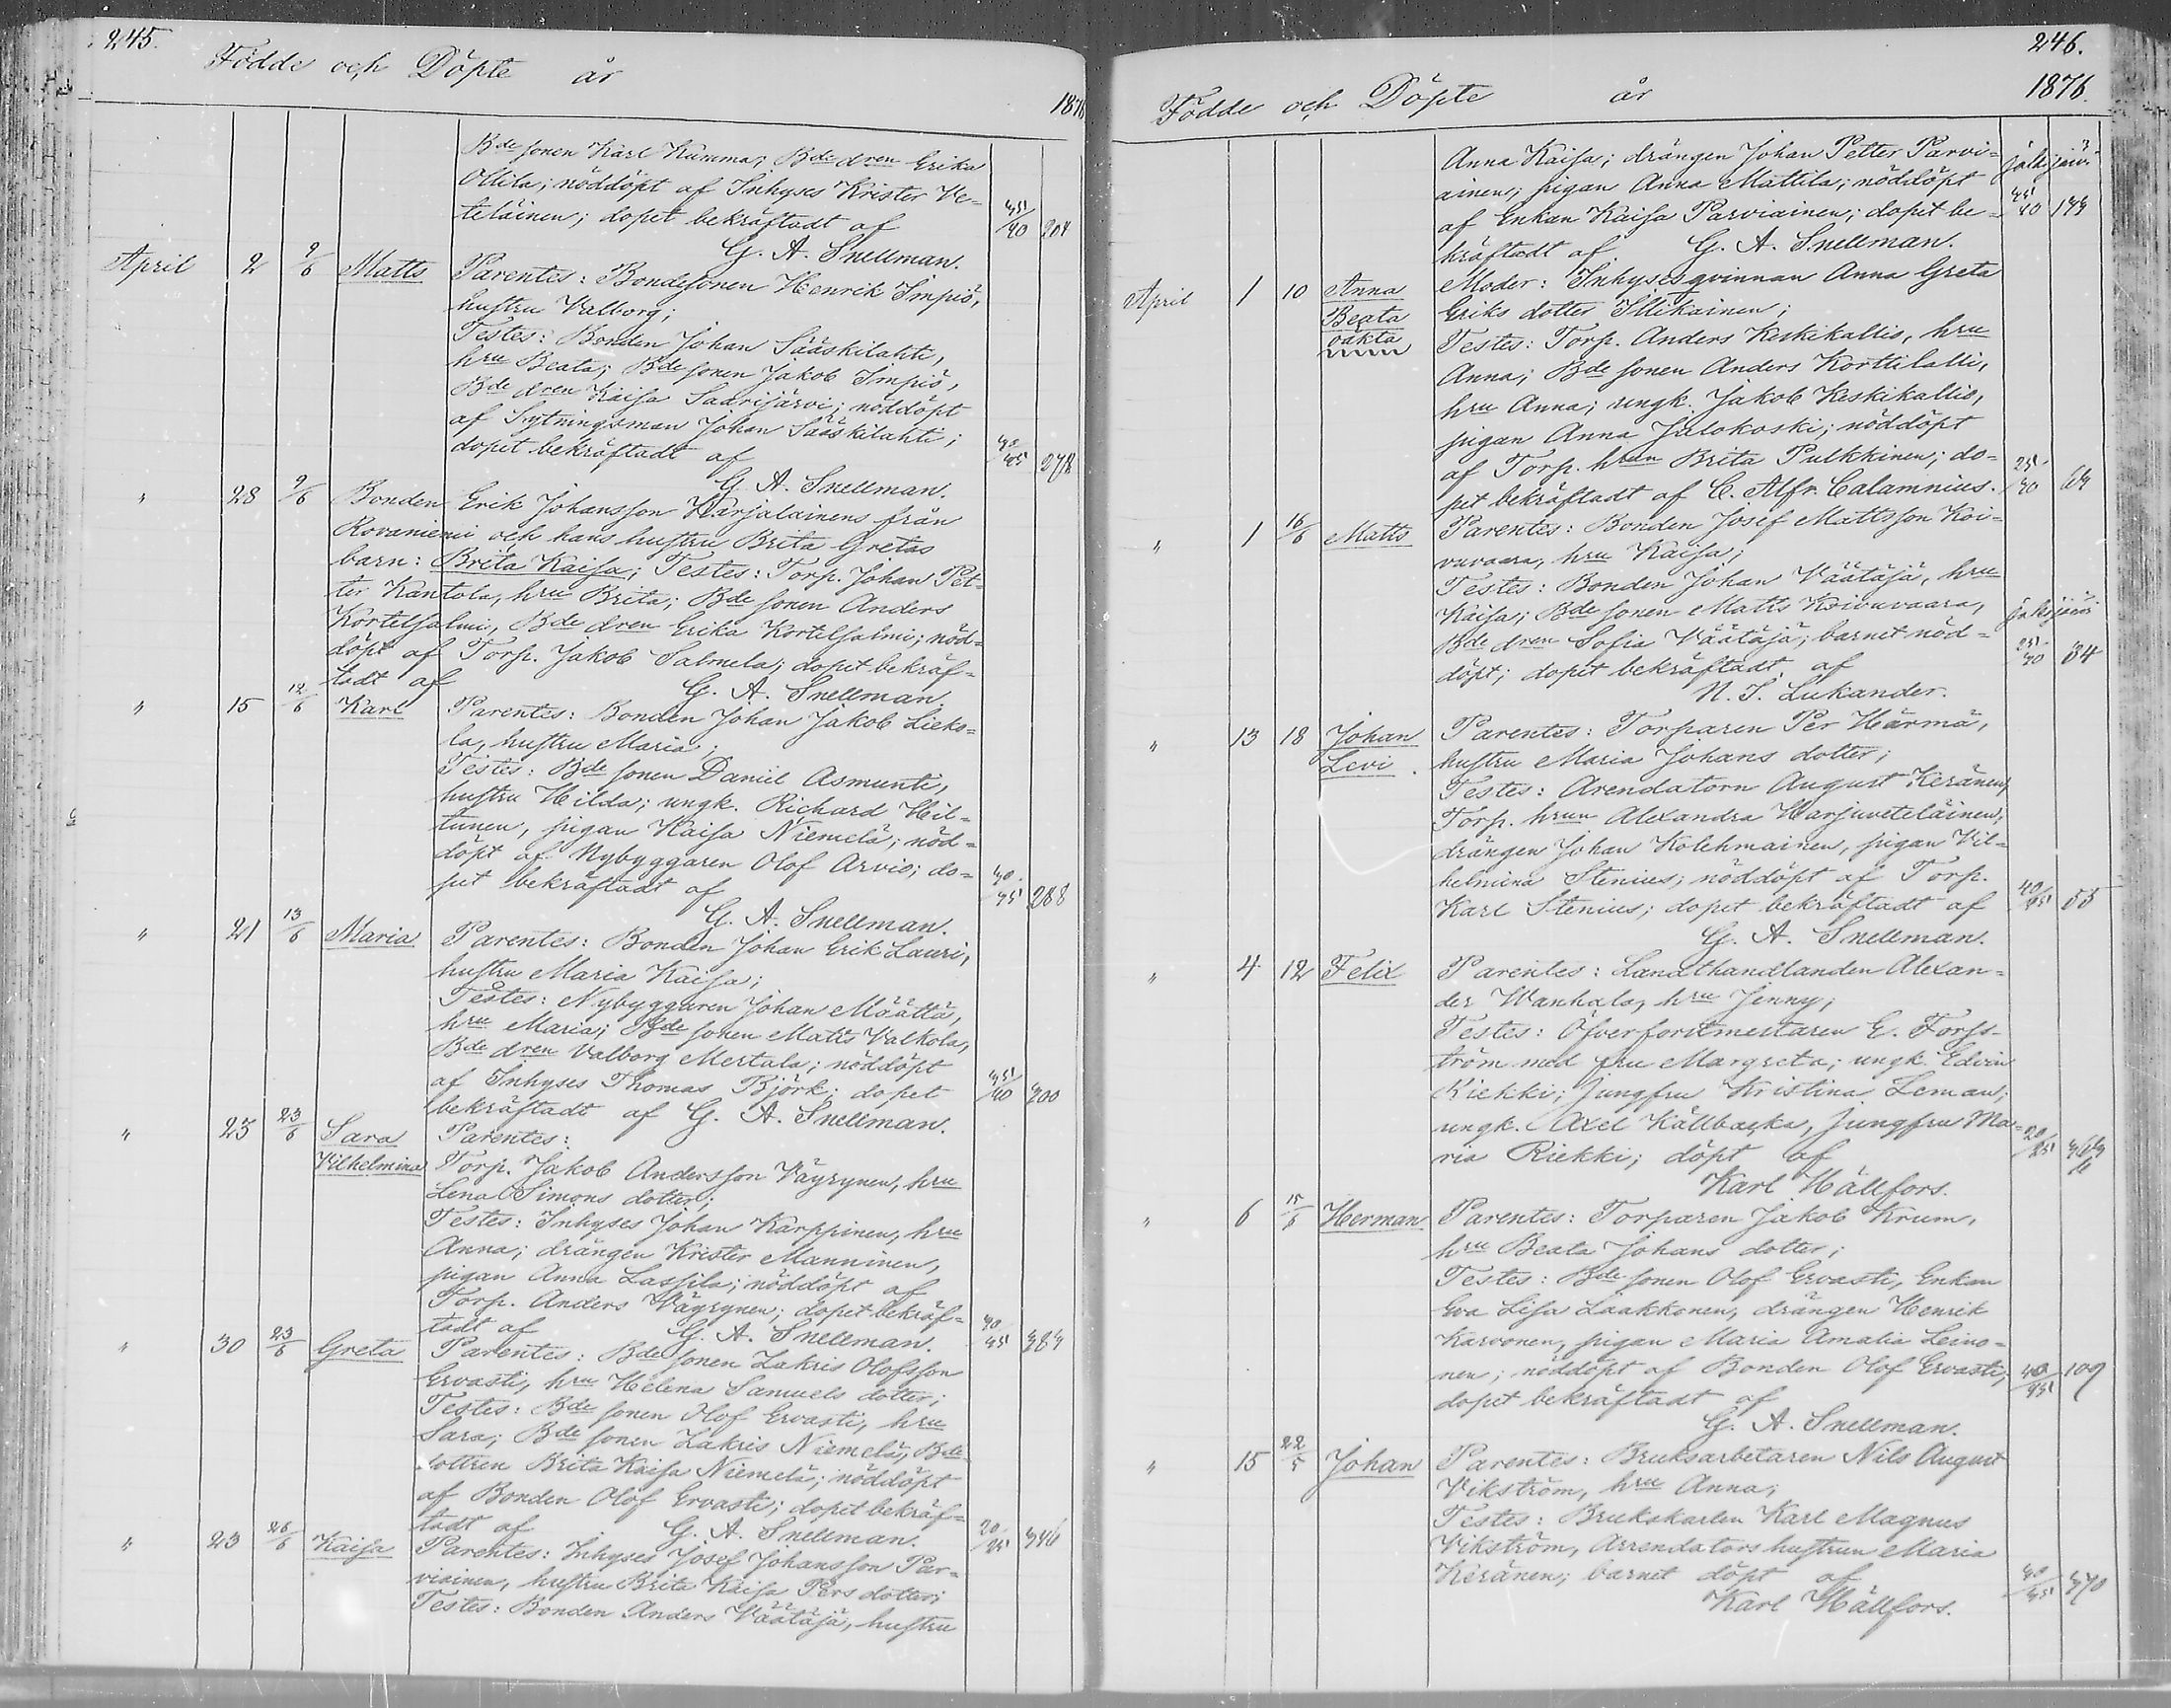 245.
Födde och Döpte år 1876
Bde sonen Karl Kumma; Bde dren Erika
Ollila; nöddöpt af Inhyses Krister Ve-
teläinen; dopet bekräftadt af 35/40 204
G. A. Snellman.
April 2 9/6 Matts Parentes: Bondesonen Henrik Impiö,
hustru Valborg;
Testes: Bonden Johan Sääskilahti,
hru Beata; Bde sonen Jakob Impiö,
Bde dren Kaisa Saarijärvi; nöddöpt
af Sytningsman Johan Sääskilahti;
dopet bekräftadt af 278
G. A. Snellman.
" 28 9/6 Bonden Erik Johansson Karjalainens från
Rovaniemi och hans hustru Brita Gretas
barn: Brita Kaisa; Testes: Torp. Johan Pet-
ter Kantola, hru Brita; Bde sonen Anders
Kortelsalmi, Bde dren Erika Kortelsalmi; nöd-
döpt af Torp. Jakob Salmela; dopet bekräf-
tadt af G. A. Snellman.
" 15 12/6 Karl Parentes: Bonden Johan Jakob Lieko-
la, hustru Maria;
Testes: Bde sonen Daniel Asmunti,
hustru Hilda; ungk. Richard Hil-
tunen, pigan Kaisa Niemelä; nöd-
döpt af Nybyggaren Olof Arvio; do-
pet bekräftadt af 288
G. A. Snellman.
" 21 13/6 Maria Parentes: Bonden Johan Erik Lauri,
hustru Maria Kaisa;
Testes: Nybyggaren Johan Määttä,
hru Maria; Bde sonen Matts Valkola,
Bde dren Valborg Mertala; nöddöpt
af Inhyses Thomas Björk; dopet 35/40 200
bekräftadt af G. A. Snellman.
" 25 23/6 Sara Parentes:
Vilhelmina Torp. Jakob Andersson Väyrynen, hru
Lena Simons dotter;
Testes: Inhyses Johan Karppinen, hru
Anna; drängen Krister Manninen,
pigan Anna Lassila; nöddöpt af
Torp. Anders Väyrynen; dopet bekräf-
tadt af G. A. Snellman.
" 30 23/6 Greta Parentes: Bde sonen Zakris Olofsson
Ervasti, hru Helena Samuels dotter;
Testes: Bde sonen Olof Ervasti, hru
Sara; Bde sonen Zakris Niemelä, Bde
dottren Brita Kaisa Niemelä; nöddöpt
af Bonden Olof Ervasti; dopet bekräf-
tadt af G. A. Snellman. 20/25 346
" 23 26/6 Kaisa Parentes: Inhyses Josef Johansson Par-
viainen, hustru Brita Kaisa Pers dotter;
Testes: Bonden Anders Väätäjä, hustru
246.
Födde och Döpte år 1876.
Anna Kaisa; drängen Johan Petter Parvi-
ainen; pigan Anna Mattila; nöddöpt
af Enkan Kaisa Parviainen; dopet be-
kräftadt af G. A. Snellman.
April 1 10 Anna Moder: Inhysesqvinnan Anna Greta
Beata Eriks dotter Illikainen;
oäkta Testes: Torp. Anders Keskikallio, hru
Anna; Bde sonen Anders Korttilalli,
hru Anna; ungk. Jakob Keskikallio,
pigan Anna Julokoski; nöddöpt
af Torp. hrun Brita Pulkkinen; do-
pet bekräftadt af C. Alfr. Calamnius.
" 1 16/6 Matts Parentes: Bonden Josef Mattsson Koi-
vuvaara, hru Kaisa;
Testes: Bonden Johan Väätäjä, hru
Kaisa; Bde sonen Matts Koivuvaara,
Bde dren Sofia Väätäjä; barnet nöd-
döpt; dopet bekräftadt af 84
N. I. Lukander.
" 13 18 Johan Parentes: Torparen Per Härmä,
Levi. hustru Maria Johans dotter;
Testes: Arendatorn August Keränen,
Torp. hrun Alexandra Harjuveteläinen,
drängen Johan Kolehmainen, pigan Vil-
helmina Stenius; nöddöpt af Torp.
Karl Stenius; dopet bekräftadt af 40/45 55
G. A. Snellman.
" 4 12 Felix Parentes: Landthandlanden Alexan-
der Wanhala, hru Jenny;
Testes: Öfverforstmestaren E. Forss-
tröm med fru Margreta; ungk. Edvin
Riekki; Jungfru Kristina Leman;
ungk. Axel Källbacka, Jungfru Ma-
ria Riekki; döpt af
Karl Hällfors.
" 6 15/5 Herman Parentes: Torparen Jakob Krum,
hru Beata Johans dotter;
Testes: Bde sonen Olof Ervasti, Enkan
Eva Lisa Laakkonen, drängen Henrik
Karvonen, pigan Maria Amalia Leino-
nen; nöddöpt af Bonden Olof Ervasti, 40/45 109
dopet bekräftadt af
G. A. Snellman.
" 15 22/5 Johan Parentes: Bruksarbetaren Nils August
Vikström, hru Anna;
Testes: Brukskarlen Karl Magnus
Vikström, Arrendators hustrun Maria
Keränen; barnet döpt af 370
Karl Hällfors.